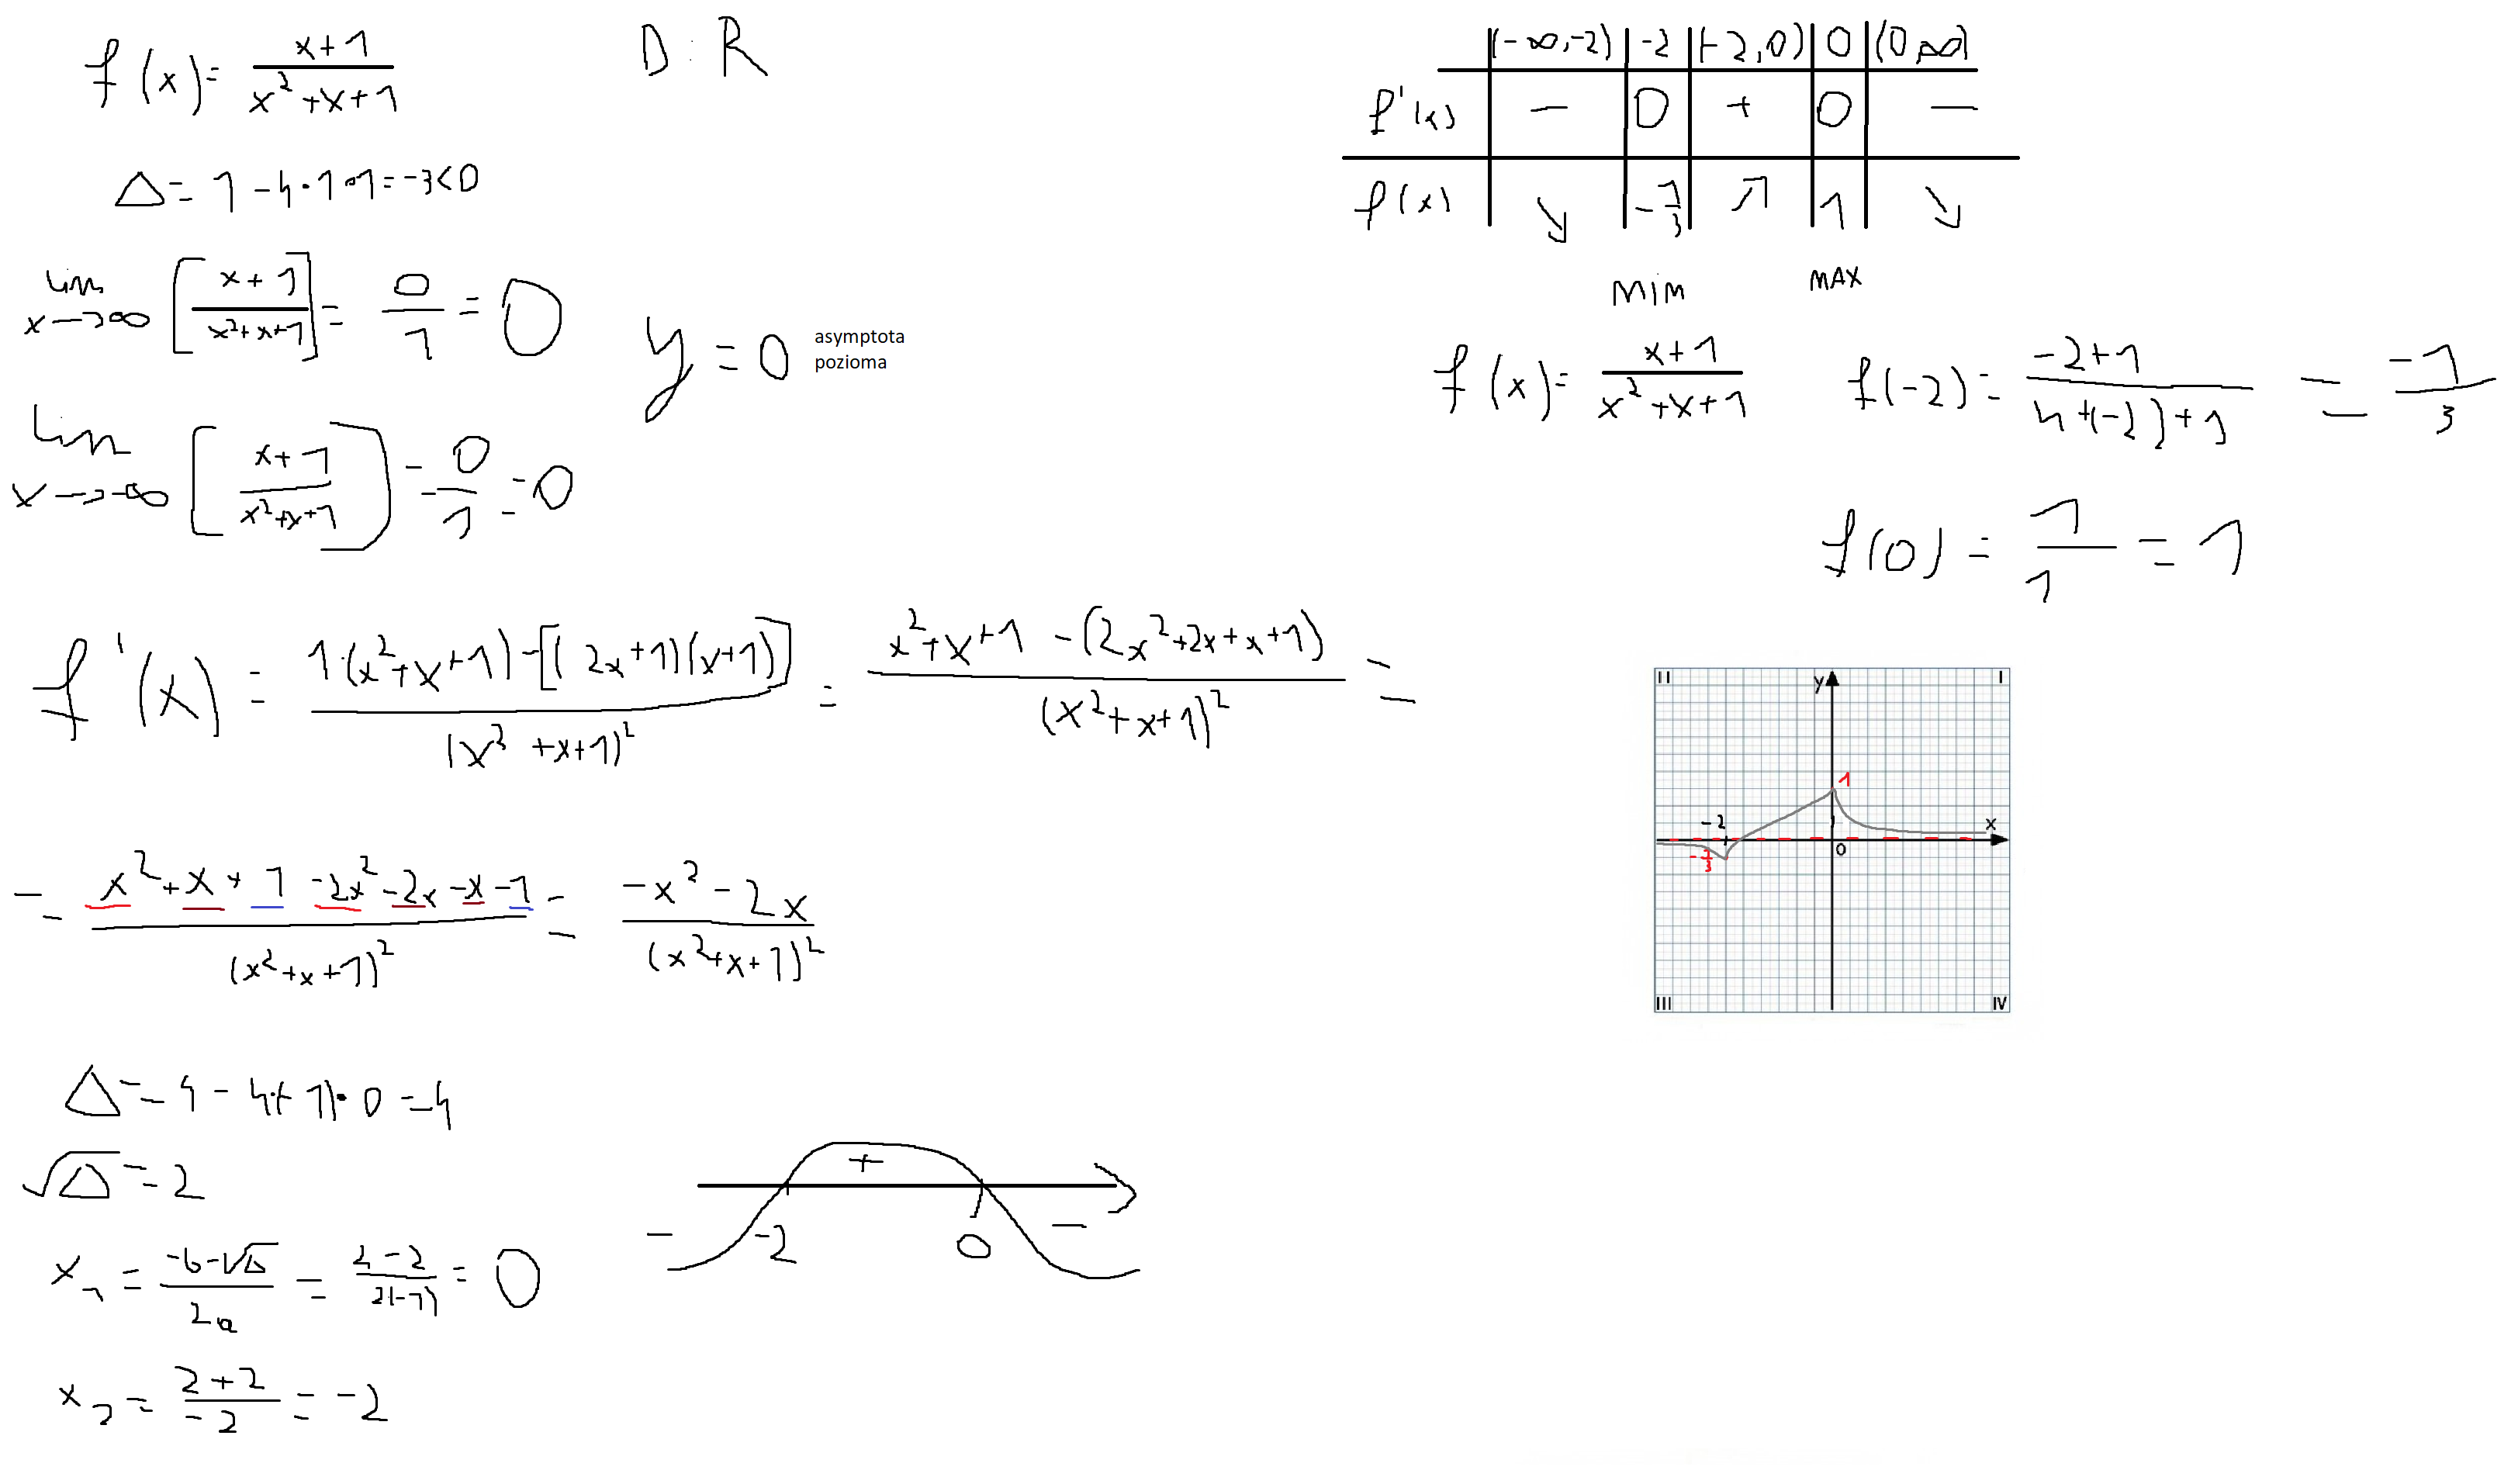 f(x) = (x+1)/(x²+x+1)    D: R
Δ = 1 - 4·1·1 = -3 < 0
lim x→∞ [(x+1)/(x²+x+1)] = 0/1 = 0
y = 0 asymptota
pozioma
lim x→-∞ [(x+1)/(x²+x+1)] = 0/1 = 0
f'(x) = (1·(x²+x+1) - [(2x+1)(x+1)])/(x²+x+1)² = (x²+x+1 - (2x²+2x+x+1))/(x²+x+1)² =
= (x²+x+1-2x²-2x-x-1)/(x²+x+1)² = (-x²-2x)/(x²+x+1)²
Δ = 4 - 4·(-1)·0 = 4
√Δ = 2
x₁ = (-b-√Δ)/2a = (2-2)/(2(-1)) = 0
x₂ = (2+2)/(-2) = -2
- -2 + 0 -
(-∞,-2) | -2 | (-2,0) | 0 | (0,∞)
f'(x) | - | 0 | + | 0 | -
f(x) | ↘ | -1/3 | ↗ | 1 | ↘
MIN MAX
f(x) = (x+1)/(x²+x+1)    f(-2) = (-2+1)/(4+(-2)+1) = -1/3
f(0) = 1/1 = 1
II y I
1
-2 x
-1/3 0
III IV